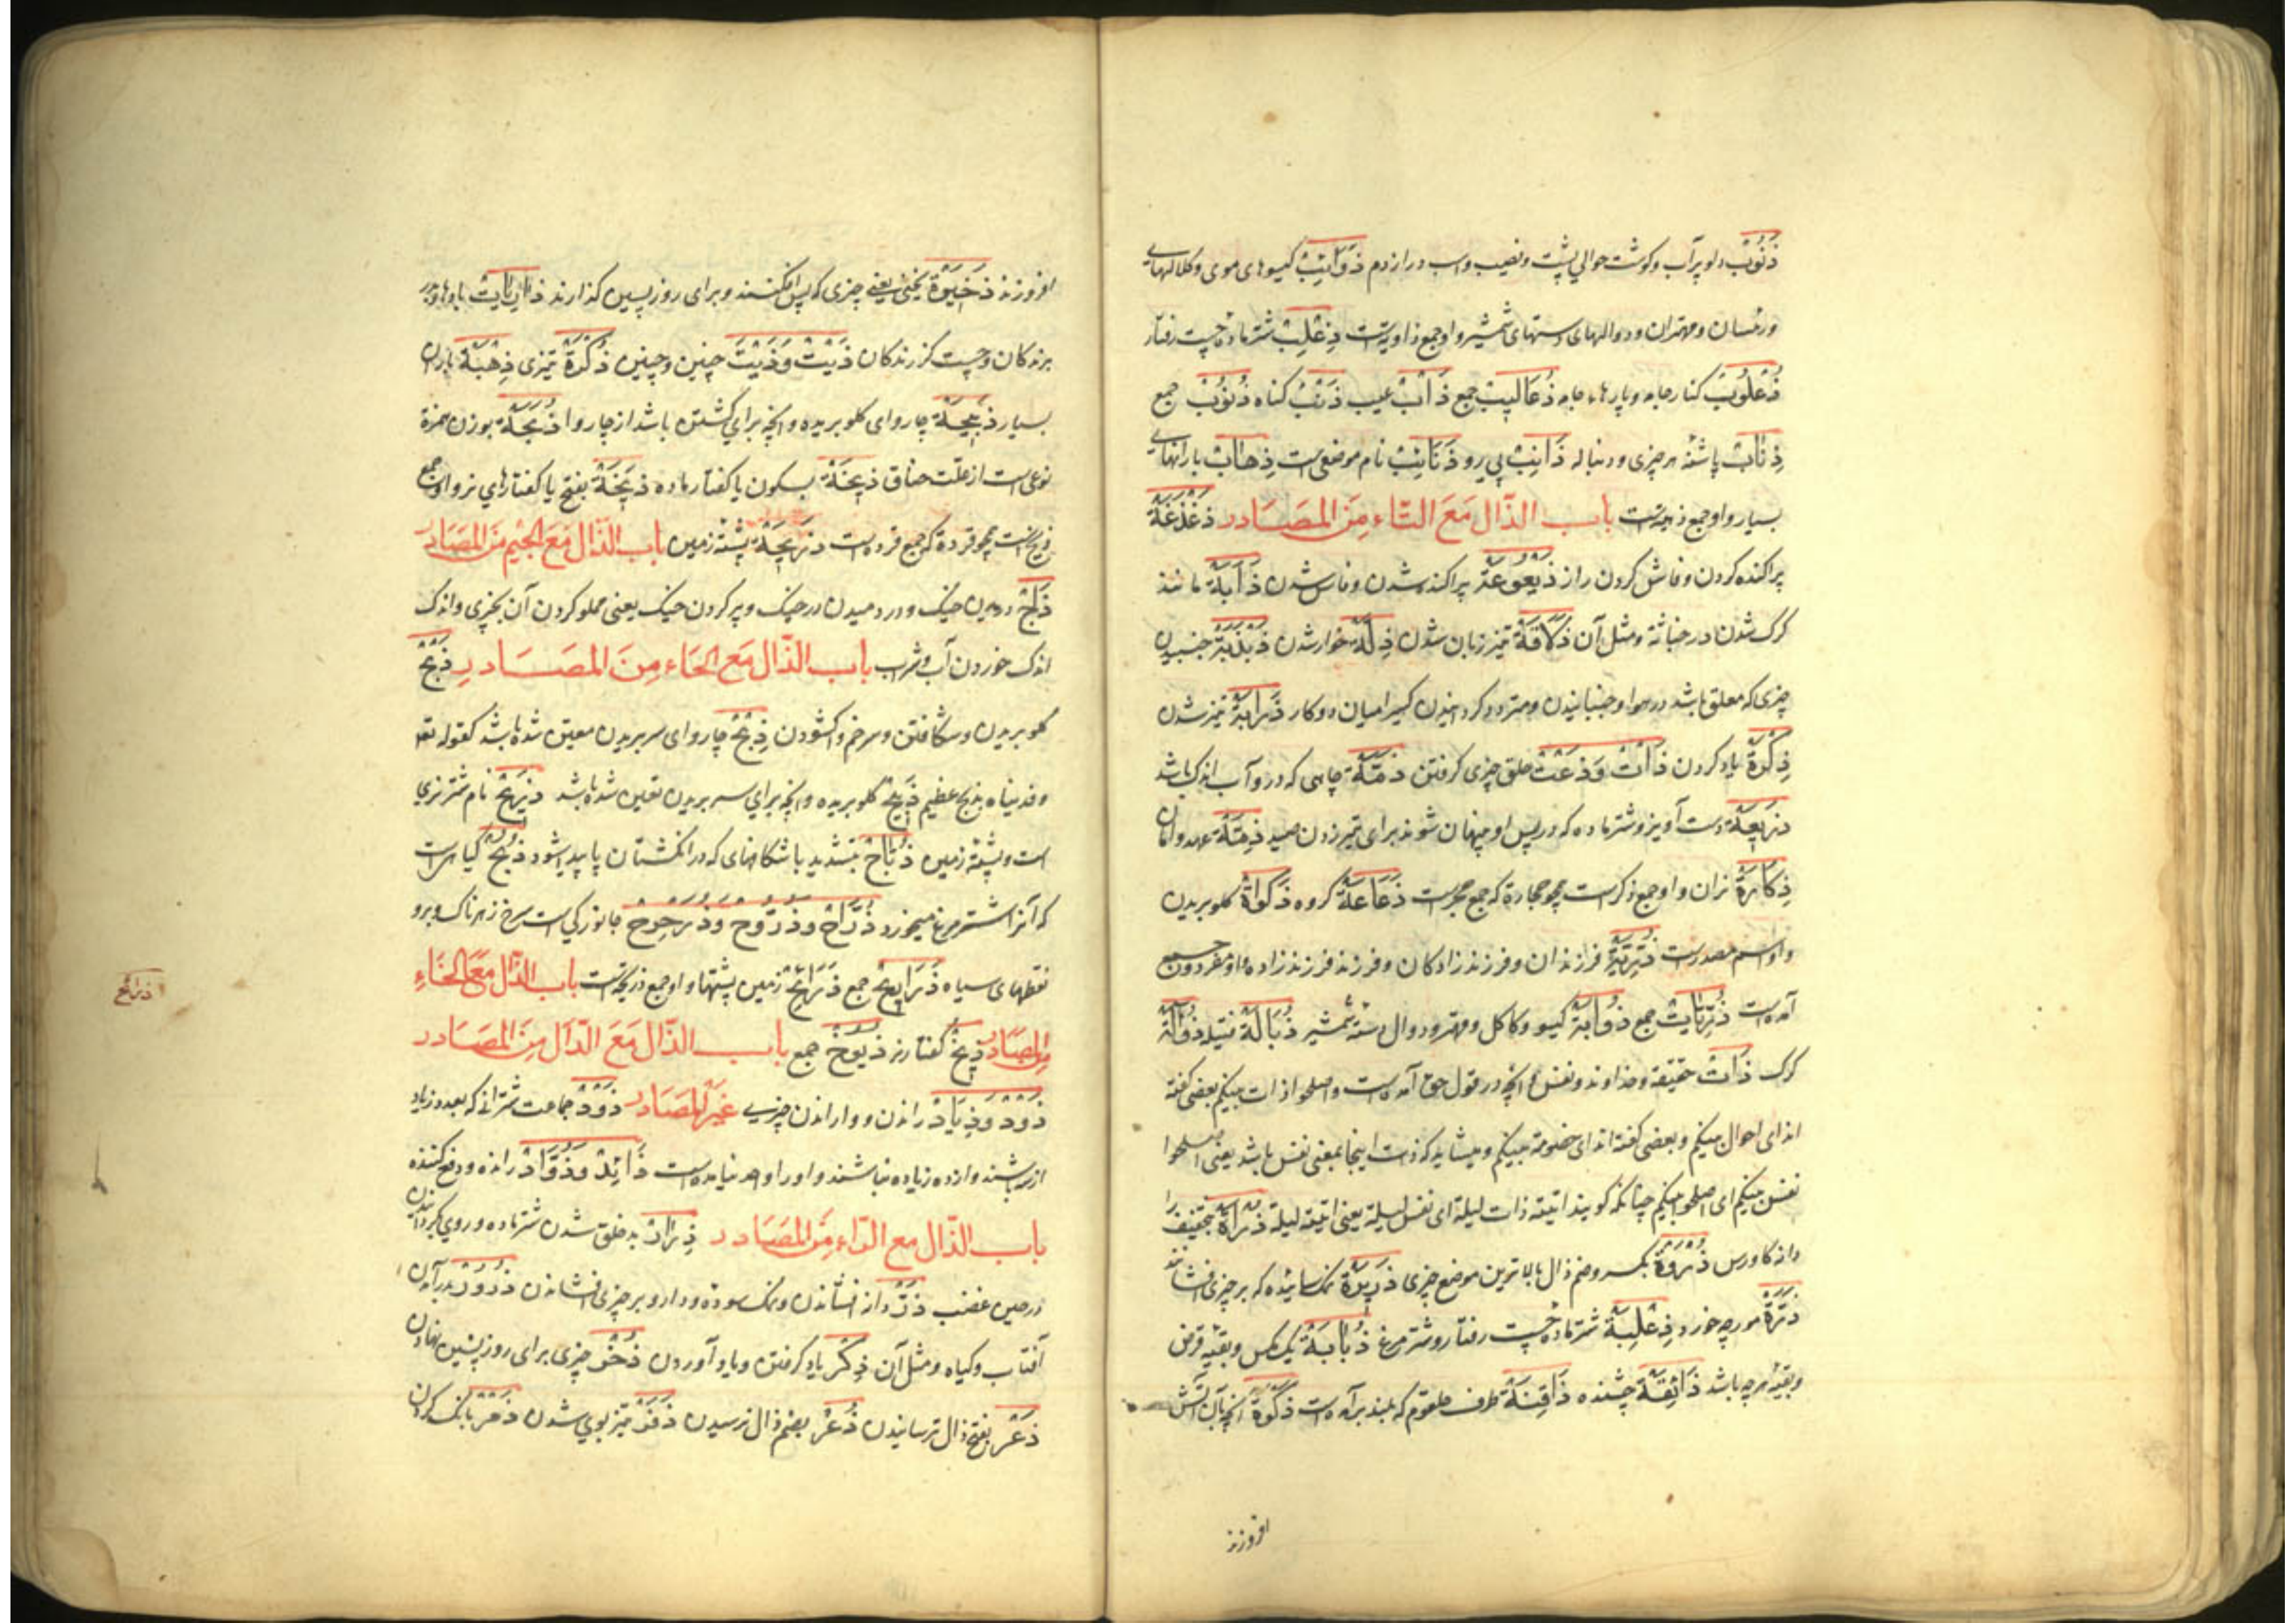 ذَنُوبٌ دلو پر آب و کوشت حوالي پشت و نصیب و اسب دراز دم ذَوَائِبُ کیسوهای موی و کلالهای
و رئسان و مهتران و دوالهای دستهای شمشیر و او جمع ذاوبه است ذِعْلِبٌ شتر ماده چست رفتار
ذُعْلُوبٌ کنار جامه و پارهاء جامه ذُعَالِيبُ جمع ذَابٌ عیب ذَنْبٌ کناه ذُنُوبٌ جمع
ذِنَابٌ پاشنه هر چیزی و دنباله ذَانِبٌ پي رو ذَنَائِبُ نام موضعی است ذِهَابٌ بارانهاي
بسیار و او جمع ذهبه است باب الذّال مَعَ التّاء مِنَ المصَادر ذَعْذَعَةٌ
پراکنده کردن و فاش کردن راز ذَيْعُوعَةٌ پراکنده شدن و فاش شدن ذَآبَةٌ مانند
کرک شدن در خباثة و مثل آن ذَلَاقَةٌ تیز زبان شدن ذِلَّةٌ خوار شدن ذَبْذَبَةٌ جنبیدن
چیزی که معلق باشد در هوا و جنبانیدن و متردد کردانیدن کسی را میان دو کار ذَرَابَةٌ تیز شدن
ذِكْرَةٌ یاد کردن ذَأْتٌ وَذَعْتٌ حلق چیزی کرفتن ذَمَّةٌ چاهی که درو آب اندک باشد
ذَرِيعَةٌ دست آویز و شتر ماده که در پس او پنهان شوند برای تیر زدن صید ذِمَّةٌ عهد و امان
ذِكَارَةٌ نران و او جمع ذکر است همچو حجارة که جمع حجر است ذَعَاعَةٌ کروه ذَكَوٰةٌ کلو بریدن
و او اسم مصدر است ذُرِّيَّةٌ فرزندان و فرزند زادکان و فرزند فرزند زاده و او مفرد و جمع
آمده است ذُرِّيَّاتٌ جمع ذُؤَابَةٌ کیسو و کاکل و مهتر و دوال دستهٔ شمشیر ذُبَالَةٌ فتیله ذُؤَالَةٌ
کرک ذَاتٌ حقیقة و خداوند و نفس و انچه در قول حق آمده است و اصلحوا ذات بینکم بعضی کفته
اند ای احوال بینکم و بعضی کفته اند ای خصومة بینکم و میشاید که ذات اینجا بمعنی نفس باشد یعنی اصلحوا
نفس بینکم ای اصلحوا بینکم چنانکه کویند اتیته ذات لیلة ای نفس لیلة یعنی اتیته لیلة ذُرَةٌ بتخفیف را
دانه کاورس ذُِرْوَةٌ بکسر و ضم ذال بالاترین موضع چیزی ذَرِيرَةٌ نمک سائیده که بر چیزی افشانند
ذَرَّةٌ مورچه خورد ذِعْلِبَةٌ شتر ماده چست رفتار و شتر مرغ ذُبَابَةٌ یک مکس و بقیه قرض
و بقیهٔ هر چه باشد ذَائِقَةٌ چشنده ذَاقِنَةٌ طرف حلقوم که بلند برآمده است ذَكْوَةٌ انچه بآن آتش
افروزند
افروزند ذَخِيرَةٌ یخنی یعنی چیزی که پس افکنند و برای روز پسین کذارند ذَارِيَاتٌ بادهاء
برندکان و چست کزرندکان ذَيْتَ وَذَيْتَ چنین و چنین ذُكْرَةٌ تیزی ذِهْبَةٌ باران
بسیار ذَبِيحَةٌ چاروای کلو بریده و انچه برای کشتن باشد از چاروا ذُبَحَةٌ بوزن همزة
نوعی است از علت خناق ذِيخَةٌ بسکون یا کفتار ماده ذِيَخَةٌ بفتح یا کفتارهاي نر و او جمع
ذیخ است همچو قردة که جمع قرد است ذَرِيحَةٌ پشتهٔ زمین باب الذّال مَعَ الجيم مِنَ المصَادر
ذَلْجٌ
اندک خوردن آب و شراب باب الذّال مَعَ الحَاء مِنَ المصَادر ذَبْحٌ
کلو بریدن و شکافتن و سر خم واکشودن ذِبْحٌ چاروای سر بریدن معین شده باشد کقوله تعه
و فدیناه بذبح عظیم ذَبِيحٌ کلو بریده و انچه برای سر بریدن تعین شده باشد ذَرِيحٌ نام شتر نری
است و پشتهٔ زمین ذُبَّاحٌ بتشدید با شکافهای که در انکشتان پا پدید شود ذُبَحٌ کیاهی است
که آنرا اشتر مرغ میخورد ذُرَّاحٌ وَذُرُّوحٌ وَذُرَحْرَحٌ جانورکی است سرخ زهرناک و برو
نقطهای سیاه ذَرَارِيحُ جمع ذَرَائِحُ زمین پشتها و او جمع ذریحه است باب الذّال مَعَ الخَاءِ
مِنَ المصَادر ذِيخٌ کفتار نر ذُيُوخٌ جمع باب الذّال مَعَ الدّال مِنَ المصَادر
ذَوْدٌ وَذِيَادٌ راندن و وا راندن چیزي غَيْرِ المصَادر ذَوْدٌ جماعت شتران که بعدد زیاد
از سه باشند و از ده زیاده نباشند و او را واحد نیامده است ذَائِدٌ وَذُوَّادٌ راننده و دفع کننده
باب الذّال مع الرّاء مِنَ المصَادر ذِرَارٌ بد خلق شدن شتر ماده و روی کردانیدن
در حین غضب ذَرٌّ دانه افشاندن و نمک سوده و دارو بر چیزی افشاندن ذُرُورٌ برآمدن
آفتاب و کیاه و مثل آن ذِكْرٌ یاد کرفتن و یاد آوردن ذُخْرٌ چیزی برای روز پسین نهادن
ذَعْرٌ بفتح ذال ترسانیدن ذُعْرٌ بضم ذال ترسیدن ذَفَرٌ تیز بوي شدن ذَمْرٌ بانک کردن
ذرائح